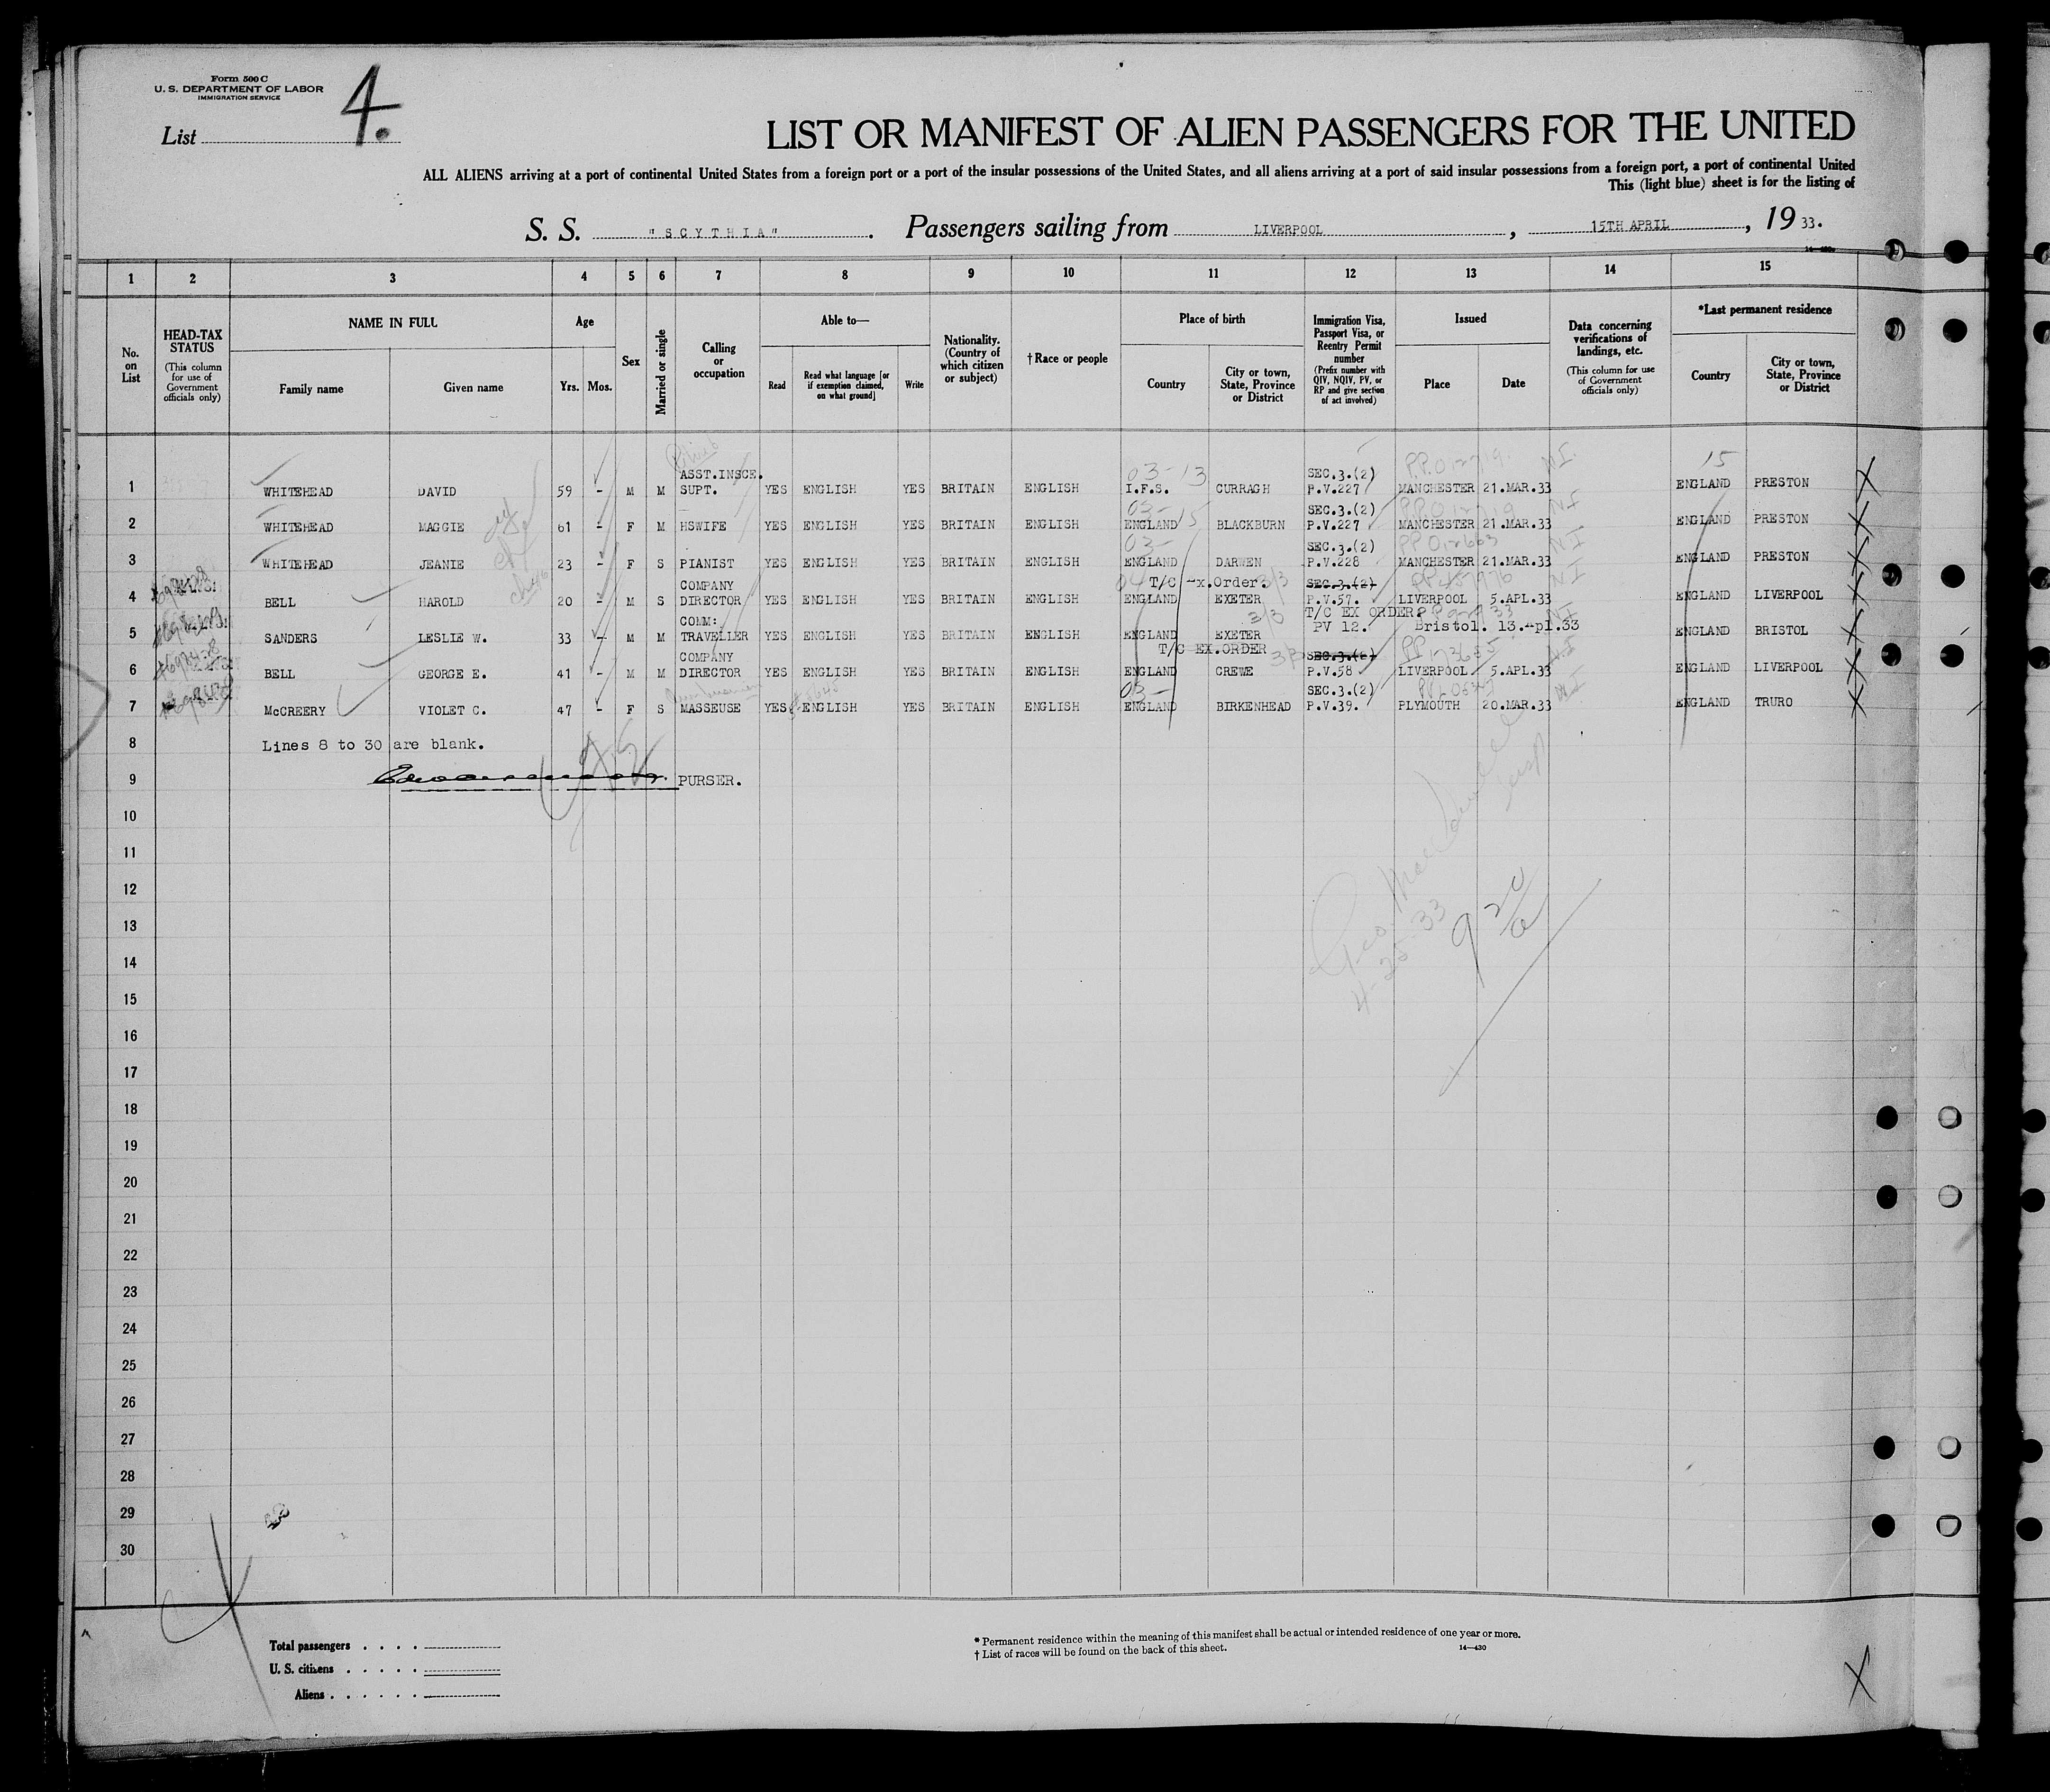 Form 500 C
U. S. DEPARTMENT OF LABOR
IMMIGRATION SERVICE
List 4.
LIST OR MANIFEST OF ALIEN PASSENGERS FOR THE UNITED
ALL ALIENS arriving at a port of continental United States from a foreign port or a port of the insular possessions of the United States, and all aliens arriving at a port of said insular possessions from a foreign port, a port of continental United
This (light blue) sheet is for the listing of
S. S. "SCYTHIA". Passengers sailing from LIVERPOOL, 15TH APRIL, 19 33.
1 2 3 4 5 6 7 8 9 10 11 12 13 14 15
No. on List
HEAD-TAX STATUS (This column for use of Government officials only)
NAME IN FULL
Family name Given name
Age
Yrs. Mos.
Sex
Married or single
Calling or occupation
Able to—
Read Read what language [or if exemption claimed, on what ground] Write
Nationality. (Country of which citizen or subject)
†Race or people
Place of birth
Country City or town, State, Province or District
Immigration Visa, Passport Visa, or Reentry Permit number (Prefix number with QIV, NQIV, PV, or RP and give section of act involved)
Issued
Place Date
Data concerning verifications of landings, etc. (This column for use of Government officials only)
*Last permanent residence
Country City or town, State, Province or District
03-13 15
ASST.INSCE. SEC.3.(2)
1 WHITEHEAD DAVID 59 - M M SUPT. YES ENGLISH YES BRITAIN ENGLISH I.F.S. CURRAGH P.V.227 MANCHESTER 21.MAR.33 ENGLAND PRESTON
SEC.3.(2)
2 WHITEHEAD MAGGIE 61 - F M HSWIFE YES ENGLISH YES BRITAIN ENGLISH ENGLAND BLACKBURN P.V.227 MANCHESTER 21.MAR.33 ENGLAND PRESTON
SEC.3.(2)
3 WHITEHEAD JEANIE 23 - F S PIANIST YES ENGLISH YES BRITAIN ENGLISH ENGLAND DARWEN P.V.228 MANCHESTER 21.MAR.33 ENGLAND PRESTON
COMPANY T/C -x.Order. SEC.3.(2)
4 BELL HAROLD 20 - M S DIRECTOR YES ENGLISH YES BRITAIN ENGLISH ENGLAND EXETER P.V.57. LIVERPOOL 5.APL.33 ENGLAND LIVERPOOL
COMM: T/C EX ORDER
5 SANDERS LESLIE W. 33 - M M TRAVELLER YES ENGLISH YES BRITAIN ENGLISH ENGLAND EXETER PV 12. Bristol. 13.-pl.33 ENGLAND BRISTOL
COMPANY T/C EX.ORDER SEC.3.(2)
6 BELL GEORGE E. 41 - M M DIRECTOR YES ENGLISH YES BRITAIN ENGLISH ENGLAND CREWE P.V.58 LIVERPOOL 5.APL.33 ENGLAND LIVERPOOL
SEC.3.(2)
7 McCREERY VIOLET C. 47 - F S MASSEUSE YES ENGLISH YES BRITAIN ENGLISH ENGLAND BIRKENHEAD P.V.39. PLYMOUTH 20.MAR.33 ENGLAND TRURO
8 Lines 8 to 30 are blank.
9 PURSER.
10
11
12
13
14
4-25-33
15
16
17
18
19
20
21
22
23
24
25
26
27
28
29
30
Total passengers
U. S. citizens
Aliens
* Permanent residence within the meaning of this manifest shall be actual or intended residence of one year or more.
† List of races will be found on the back of this sheet. 14—430